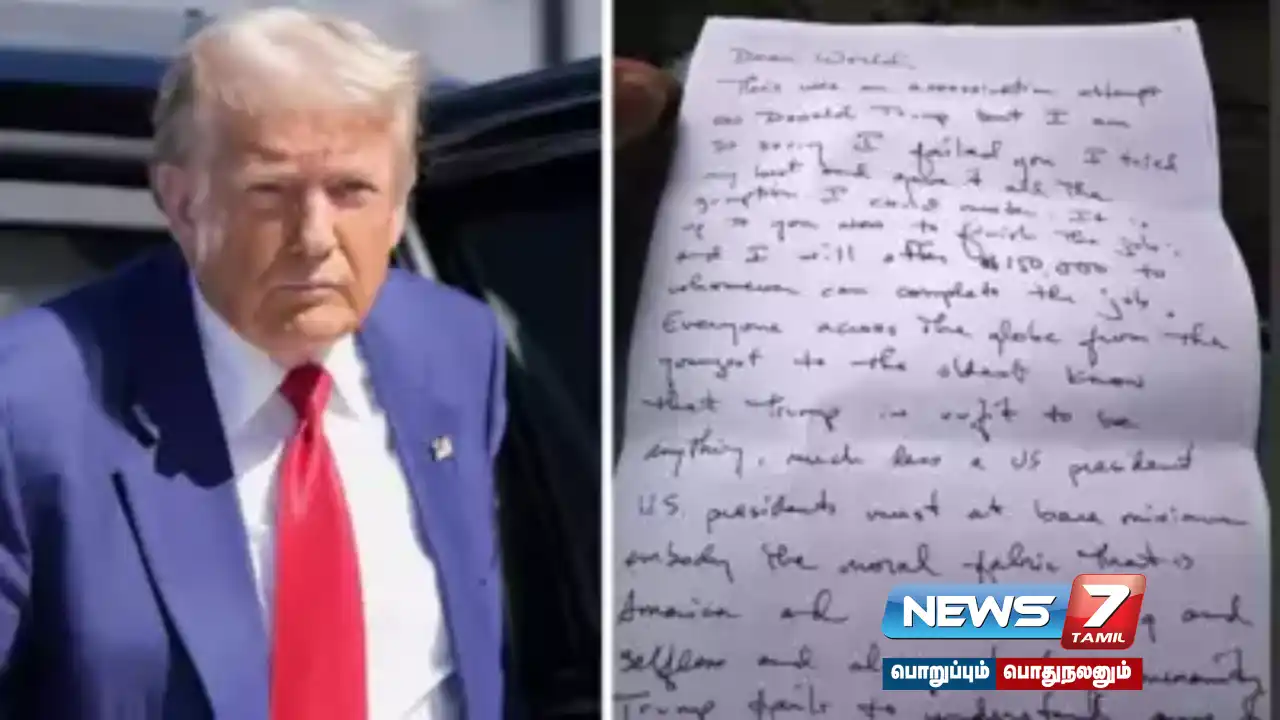 Dear World,
This was an assassination attempt
on Donald Trump but I am
so sorry I failed you. I tried
my best and gave it all the
gumption I could muster. It is
up to you now to finish the job;
and I will offer $150,000 to
whomever can complete the job.
Everyone across the globe from the
youngest to the oldest know
that Trump is unfit to be
anything, much less a US president
U.S. presidents must at bare minimum
embody the moral fabric that is
America and and
selfless and humanity
Trump fails to understand
NEWS 7
TAMIL
பொறுப்பும் பொதுநலனும்